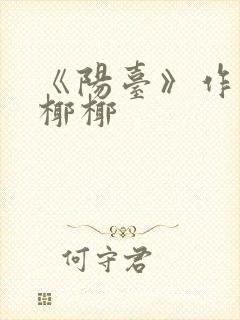 《陽臺》作
椰椰
何守君